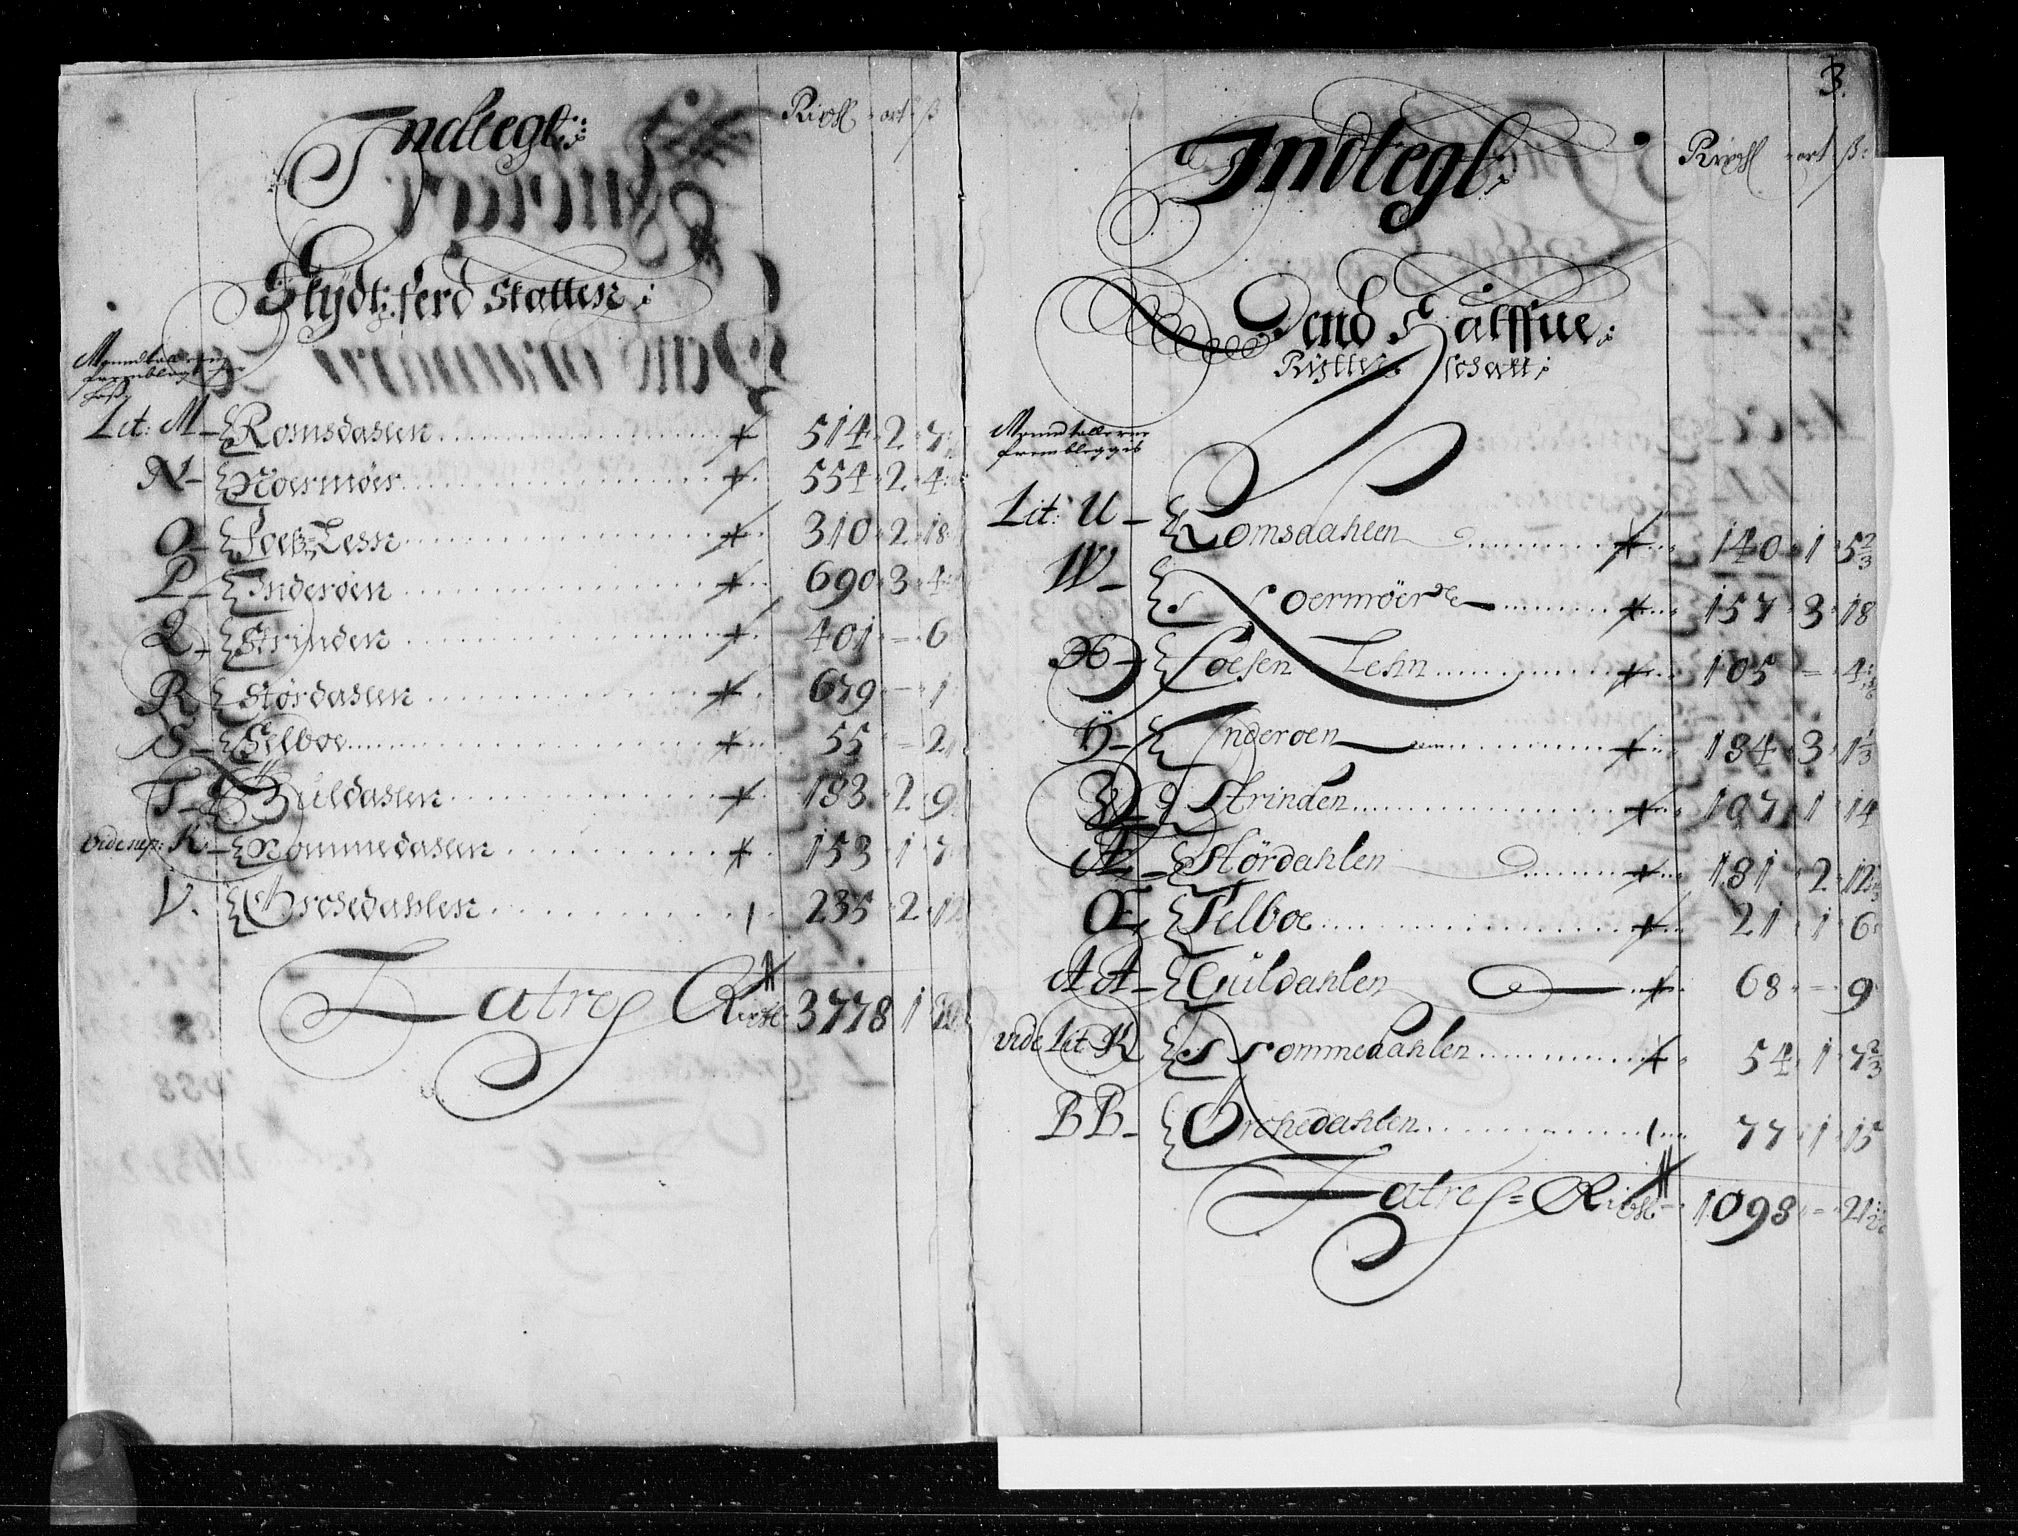 Indtegt: Rixdl ort ß
Skÿdtzferd Skatten:
Mandtallerne
fremblegt
Lit: M Romsdalen 514 2 7
N Noermøer 554 2 4
O Foeß Lehn 310 2 18
P Inderöen 690 3 4
Q Strinden 401 – 6
R Stördalen 679 – 1
S Selboe 55 – 2
T Guldalen 183 2 9
vide K Nommedalen 153 1 7
V. Orchedahlen 235 2 12
Latres Rixdl 3778 1
3.
Indtegt: Rixdl ort ß:
Dend Halffue:
Rytter schatt:
Mandtallerne
frembleggis
Lit: U Romsdahlen 140 1 5 2/3
W Noermöer 157 3 18
X Foesen Lehn 105 – 4
Ÿ Inderoen 184 3 1 1/3
Z Strinden 107 1 14
Æ Stördahlen 181 2 12
Ø Selboe 21 1 6
AA Guldahlen 68 – 9
vide Lit K Nommedahlen 54 1 7 2/3
BB Orchedahlen 77 1 15
Latres Rixdl 1098 – 21